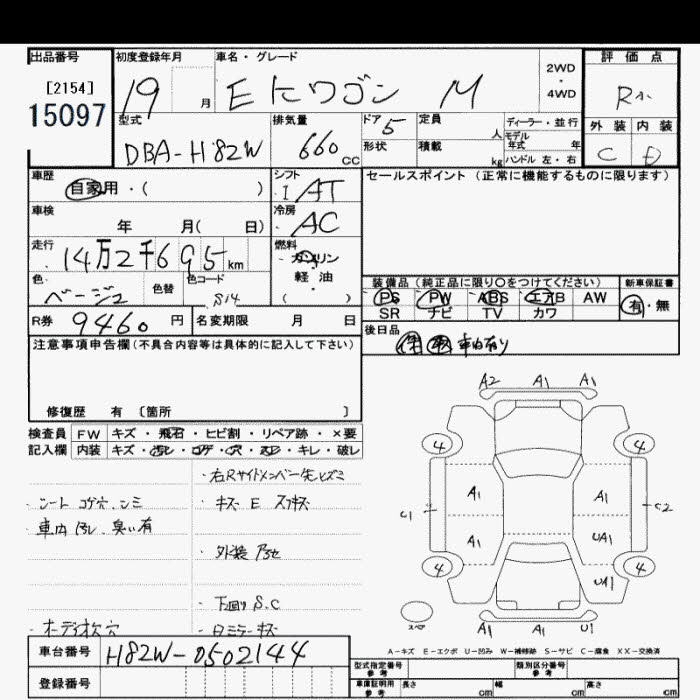 出品番号 初度登録年月 車名・グレード 評価点
[2154]
15097
19 月 EKワゴン M 2WD・4WD R
外装 内装
C D
型式 排気量 ドア 定員 ディーラー・並行
DBA-H82W 660 CC 5 人 モデル年式 年
形状 積載 kg ハンドル 左・右
車歴 シフト セールスポイント(正常に機能するものに限ります)
自家用・( ) I AT
車検 冷房
年 月( 日) AC
走行 燃料
14万2千695km ガソリン
軽油
( )
色 色替 色コード
ベージュ S14
装備品(純正品に限り○をつけてください) 新車保証書
PS PW ABS エアB AW 有・無
SR ナビ TV カワ
R券 9460円 名変期限 月 日
後日品
車内有り
注意事項申告欄(不具合内容等は具体的に記入して下さい)
修復歴 有 [箇所 ]
検査員 FW キズ・飛石・ヒビ割・リペア跡・×要
記入欄 内装 キズ・汚レ・コゲ・穴・スレ・キレ・破レ
・右Rサイドメンバー先ヒズミ
・シート コゲ穴、シミ
・キズ E スリキズ
・車内 汚レ、臭い有
・外装 アセ
・下回り S.C
・オーディオ欠 穴
・ミラーキズ
A2 A1 A1
4 4
A1 A1
C1 C2
A1 UA1
4 4
UA1
スペア A1 U1 A1
A-キズ E-エクボ U-凹み W-補修跡 S-サビ C-腐食 XX-交換済
車台番号 H82W-0502144
登録番号
型式指定番号 参考 類別区分番号 参考
車庫証明用 参考 長さ cm 幅 cm 高さ cm